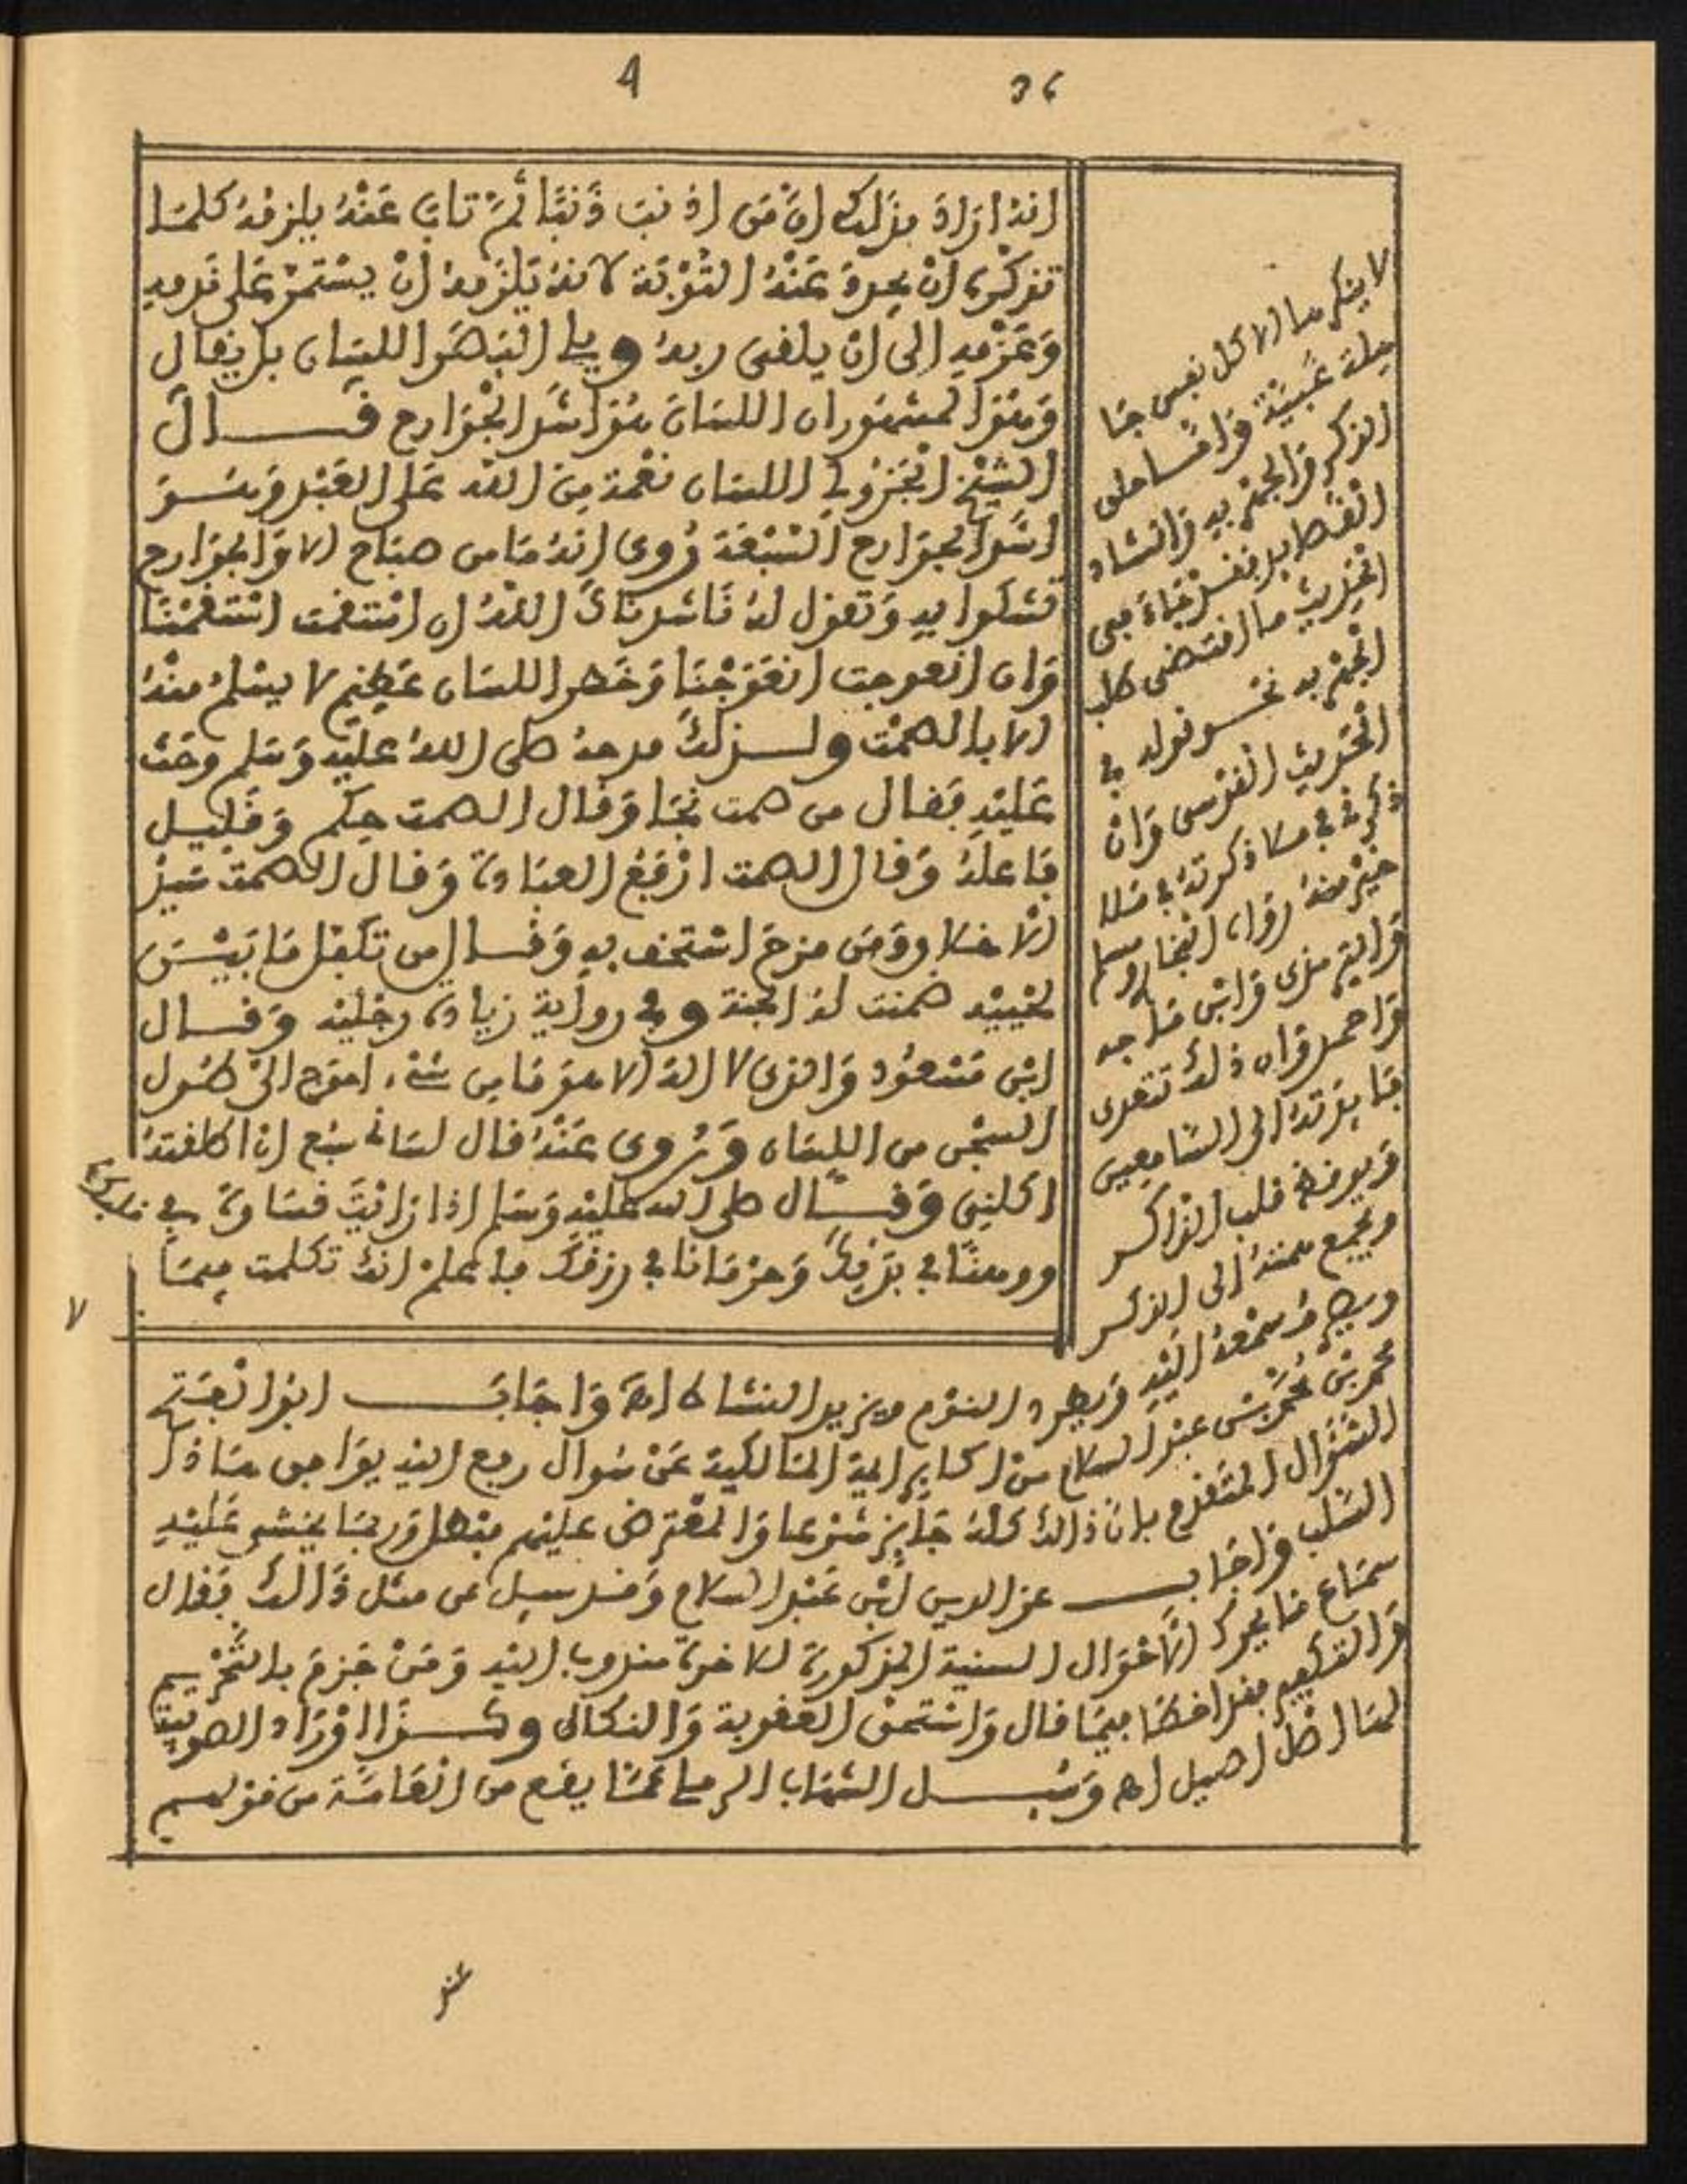 36
انه اراد بذلك ان من اذنب ذنبا ثم تاب عنه يلزمه كلما
تذكره ان يجدد عنه التوبة لانه يلزمه ان يستمر على ندمه
وعزمه الى ان يلقى ربه ويلي البصر اللسان بل يقال
وهو المشهور ان اللسان هو اشد الجوارح قال
الشيخ الجزولي اللسان نعمة من الله على العبد وهو
اشد الجوارح السبعة روي انه ما من صباح الا والجوارح
تشكوا به وتقول له ناشدناك الله ان استقمت استقمنا
وان انعوجت انعوجنا وخطر اللسان عظيم لا يسلم منه
الا بالصمت ولذلك مدحه صلى الله عليه وسلم وحث
عليه فقال من صمت نجا وقال الصمت حكم وقليل
فاعله وقال الصمت ارفع العبادة وقال الصمت سيد
الاخلاق ومن مزح استخف به وقال من تكفل ما بين
لحييه ضمنت له الجنة وفي رواية زيادة رجليه وقال
ابن مسعود والذي لا اله الا هو ما من شيء احوج الى طول
السجن من اللسان وروي عنه قال لساني سبع ان اطلقته
اكلني وقال صلى الله عليه وسلم اذا رايت قساوة في قلبك
ووهنا في بدنك وحرمانا في رزقك فاعلم انك تكلمت فيما
لا ينكرها الا كل نفس جا
هلة غبية واما على
الذكر والجهر به وانشاد
الحديث ما اقتضى طلب
الجهر به نحو قوله في
الحديث القدسي وان
ذكرني في ملا ذكرته في ملا
خير منه رواه البخاري ومسلم
والترمذي وابن ماجه
واحمد ولان ذلك تتعدى
فايدته الى السامعين
ويوقظ قلب الذاكر
ويجمع همته الى الذكر
ويصرف سمعه اليه ويطرد النوم ويزيد النشاط اه واجاب ابو الفتح
محمد بن محمد بن عبد السلام من اكابر ايمة المالكية عن سوال رفع اليه يوافق هاذا
السؤال المتقدم بان ذالك كله جايز شرعا والمعترض عليهم مبطل وربما يخشى عليه
السلب واجاب عز الدين ابن عبد السلام وقد سيل عن مثل ذالك فقال
سماع ما يحرك الاحوال السنية المذكورة للاخرة مندوب اليه ومن جزم بالتحريم
والتقبيح فقد اخطا فيما قال واستحق العقوبة والنكال وكذا اوراد الصوفية
لها اصل اصيل اه وسيل الشهاب الرملي عما يقع من العامة من قولهم
عند